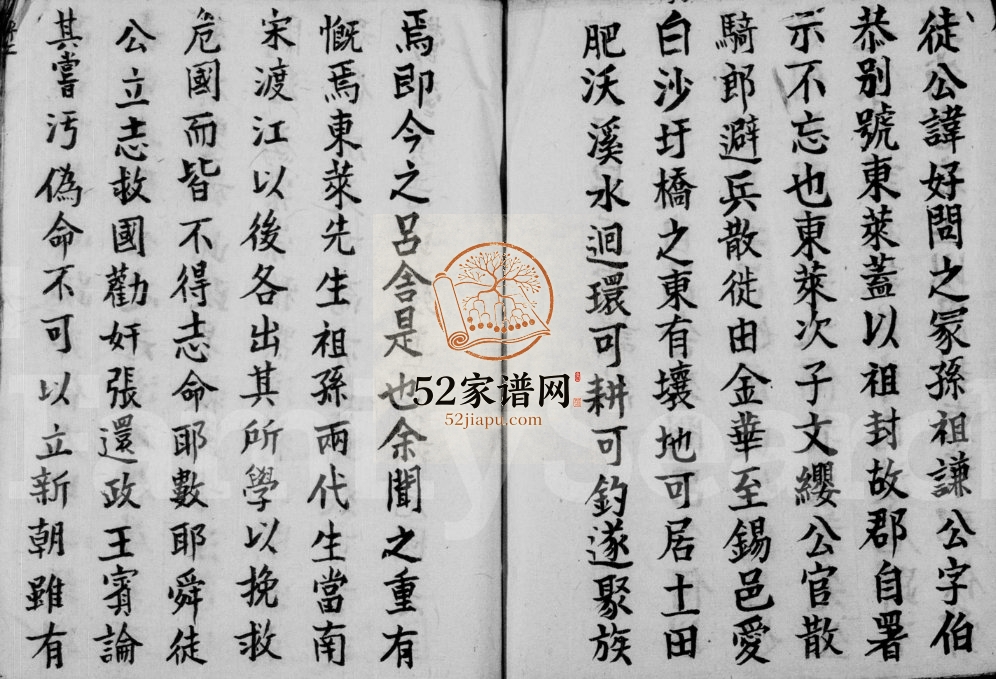 徒公諱好問之冢孫祖謙公字伯
恭别號東萊蓋以祖封故郡自署
示不忘也東萊次子文纓公官散
騎郎避兵散徙由金華至錫邑愛
白沙圩橋之東有壤地可居土田
肥沃溪水迴環可耕可釣遂聚族
焉即今之呂舍是也余聞之重有
慨焉東萊先生祖孫兩代生當南
宋渡江以後各出其所學以挽救
危國而皆不得志命耶數耶舜徒
公立志救國勸奸張還政王賓論
其嘗污偽命不可以立新朝雖有
52家谱网
52jiapu.com